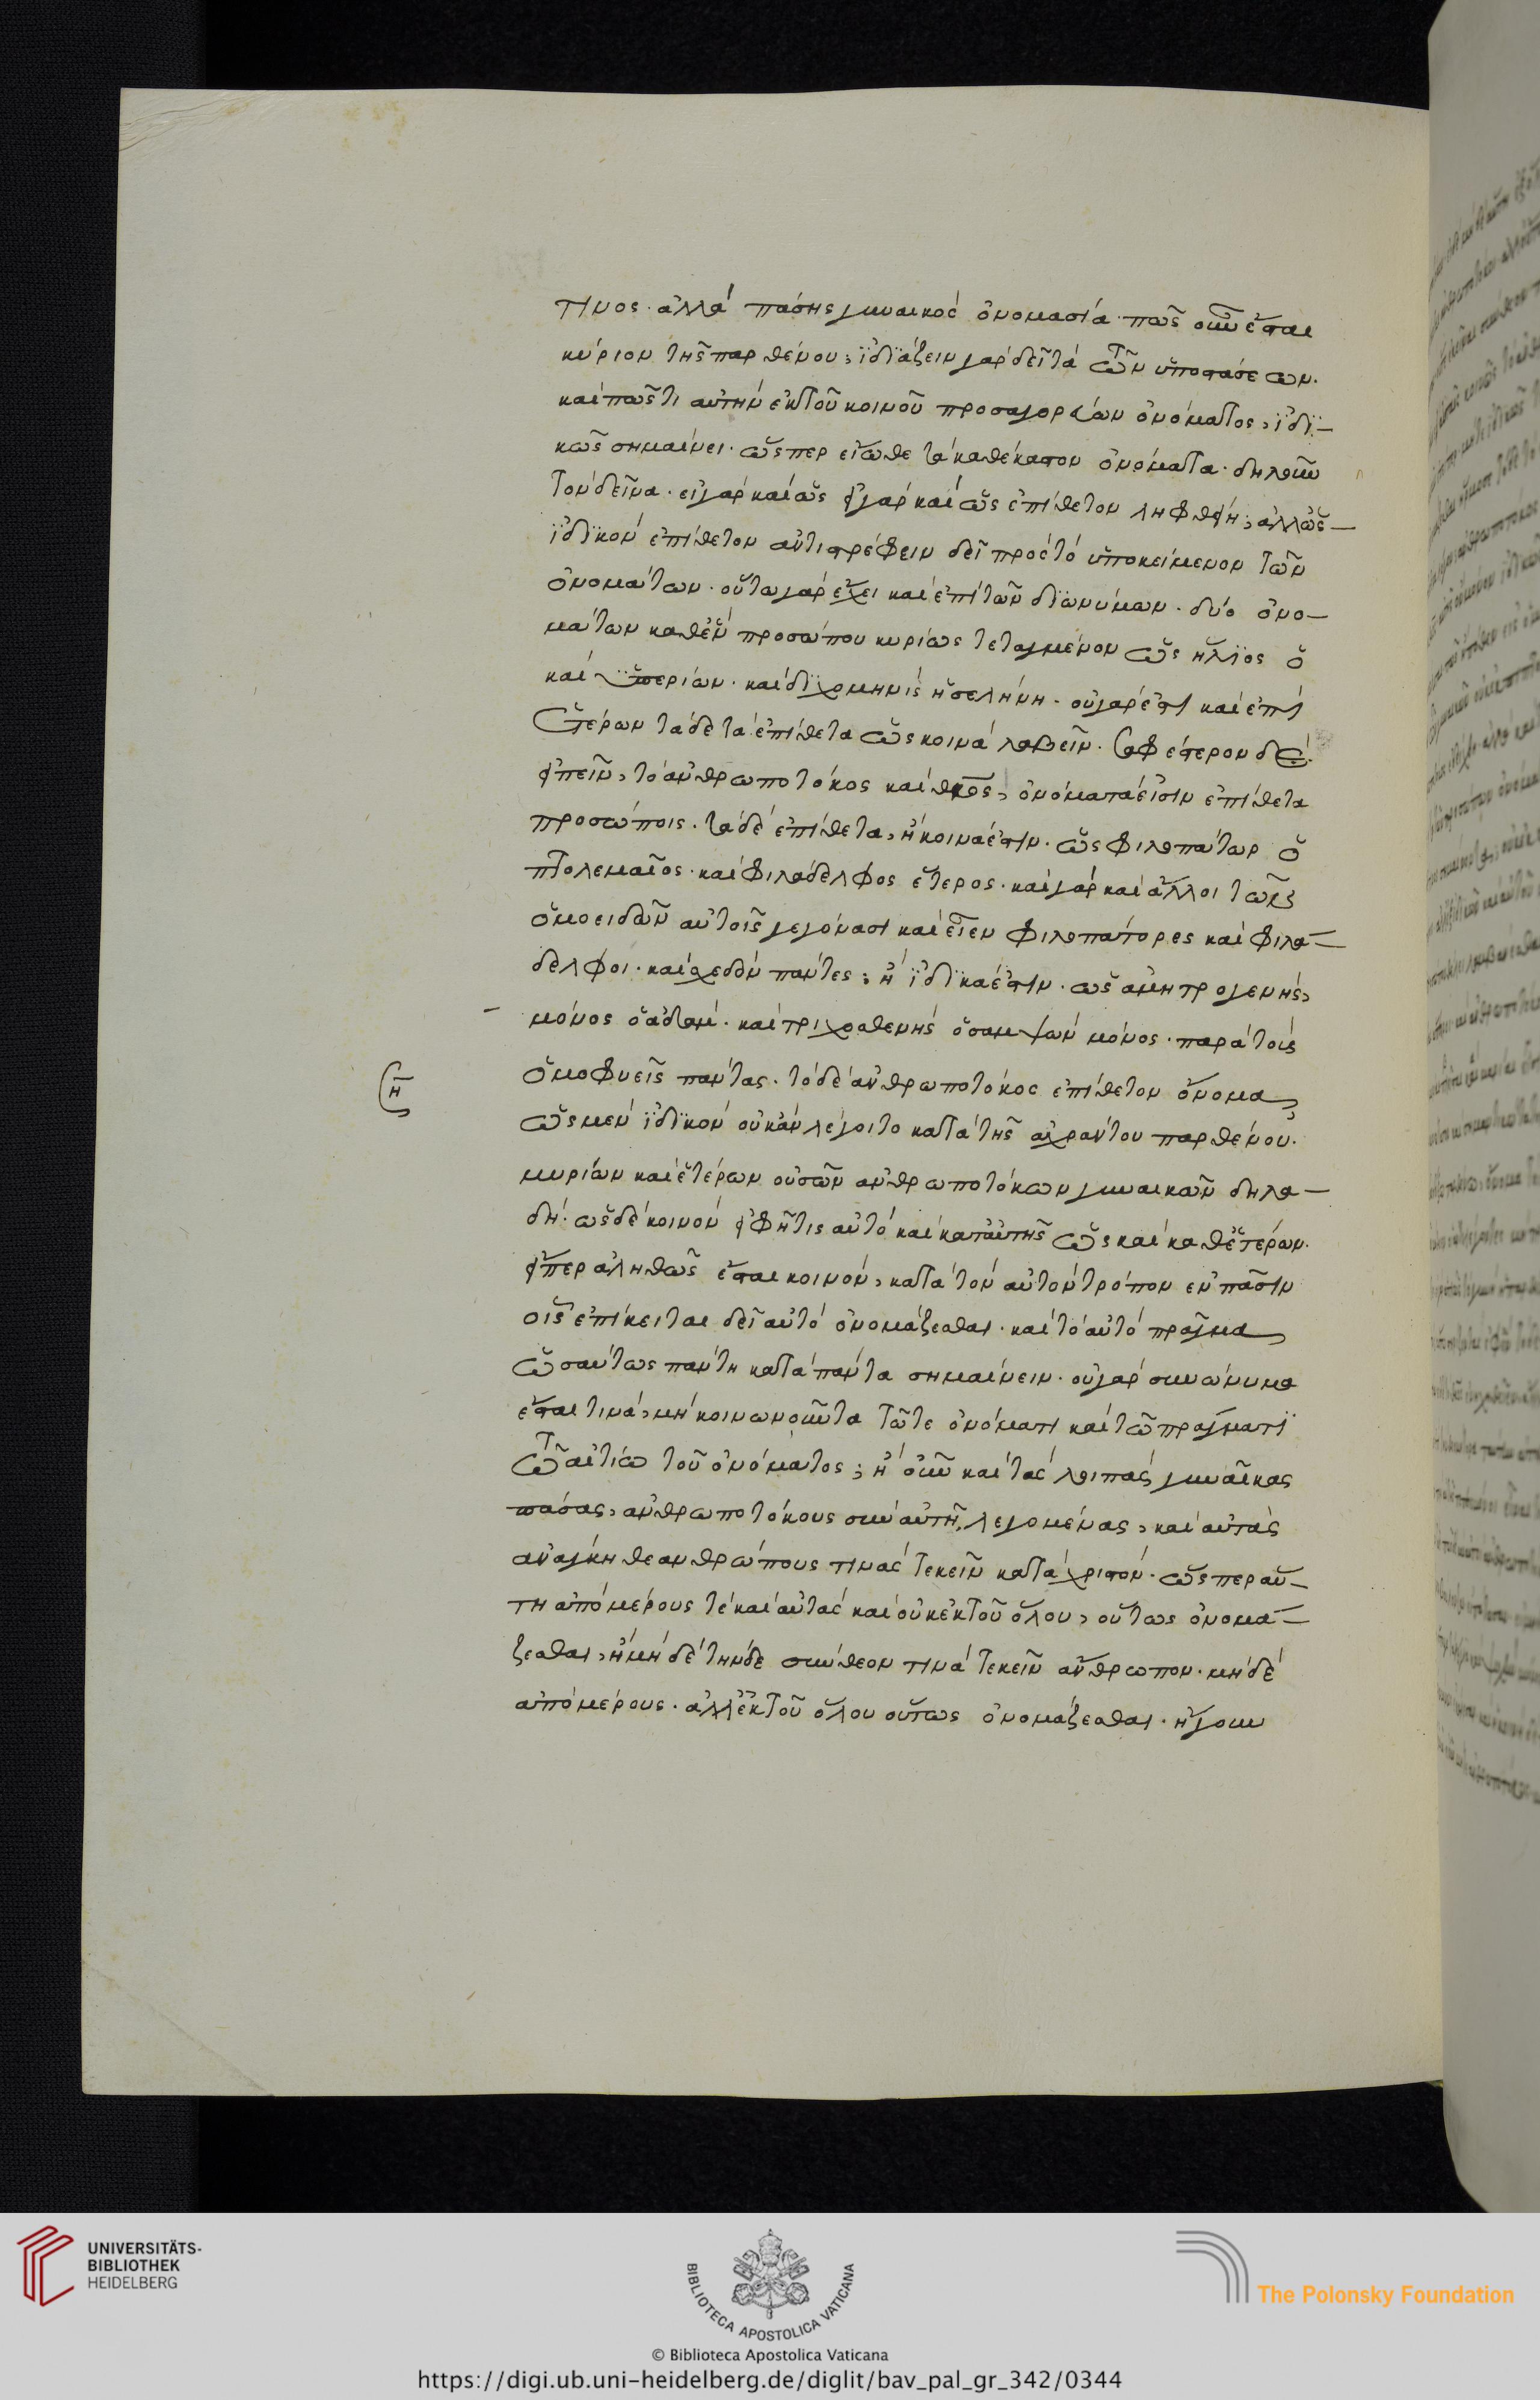 τινος· ἀλλὰ πάσης γυναικὸς ὀνομασία· πῶς οὖν ἔσται
κύριον τῆς παρθένου; ἰδιάζειν γὰρ δεῖ τὰ τῶν ὑποστάσεων·
καὶ πῶς τὶ αὐτὴν ἐκ τοῦ κοινοῦ προσαγορεύων ὀνόματος, ἰδι-
κῶς σημαίνει· ὥσπερ εἴωθε τὰ καθέκαστον ὀνόματα· δηλοῦν
τὸν δεῖνα· εἰ γὰρ καὶ ὡς εἰ γὰρ καὶ ὡς ἐπίθετον ληφθείη, ἀλλ' ὡς
ἰδικὸν ἐπίθετον ἀντιστρέφειν δεῖ πρὸς τὸ ὑποκείμενον τῶν
ὀνομάτων· οὕτω γὰρ ἔχει καὶ ἐπὶ τῶν διωνύμων· δύο ὀνο-
μάτων καθ' ἑνὸς προσώπου κυρίως τεταγμένον ὡς ἥλιος ὁ
καὶ ὑπεριών· καὶ διχομηνὶς ἡ σελήνη· οὐ γὰρ ἔστι καὶ ἐπὶ
ἑτέρων τάδε τὰ ἐπίθετα ὡς κοινὰ λαβεῖν· σαφέστερον δὲ
εἰπεῖν, τὸ ἀνθρωποτόκος καὶ θκος, ὀνόματα εἰσὶν ἐπίθετα
προσώποις· τὰ δὲ ἐπίθετα, ἢ κοινά ἐστιν· ὡς φιλοπάτωρ ὁ
πτολεμαῖος· καὶ φιλάδελφος ἕτερος· καὶ γὰρ καὶ ἄλλοι τῶν
ὁμοειδῶν αὐτοῖς γεγόνασι καὶ εἶεν φιλοπάτορες καὶ φιλά-
δελφοι· καὶ σχεδὸν πάντες; ἢ ἰδικά ἐστιν· ὡς ἀμητρογενής,
μόνος ὁ ἀδάμ· καὶ τριχοσθενὴς ὁ σαμψὼν μόνος· παρὰ τοὺς
(η)
ὁμοφυεῖς πάντας· τὸ δὲ ἀνθρωποτόκος ἐπίθετον ὄνομα,
ὡς μὲν ἰδικὸν οὐκ ἂν λέγοιτο κατὰ τῆς ἀχράντου παρθένου·
μυρίων καὶ ἑτέρων οὐσῶν ἀνθρωποτόκων γυναικῶν δηλα-
δή· ὡς δὲ κοινὸν εἰ φῇ τις αὐτὸ καὶ κατ' αὐτῆς ὡς καὶ καθ' ἑτέρων·
εἴπερ ἀληθῶς ἔσται κοινόν, κατὰ τὸν αὐτὸν τρόπον ἐν πᾶσιν
οἷς ἐπίκειται δεῖ αὐτὸ ὀνομάζεσθαι· καὶ τὸ αὐτὸ πρᾶγμα
ὡσαύτως πάντη κατὰ πάντα σημαίνειν· οὐ γὰρ συνώνυμα
ἔσται τινά, μὴ κοινωνοῦντα τῶ τε ὀνόματι καὶ τῶ πράγματι
τῶ αἰτίω τοῦ ὀνόματος; ἢ οὖν καὶ τὰς λοιπὰς γυναῖκας
πάσας, ἀνθρωποτόκους σὺν αὐτῆ λεγομένας, καὶ αὐτὰς
ἀνάγκη θεανθρώπους τινὰς τεκεῖν κατὰ χριστόν· ὥσπερ αὕ-
τη ἀπὸ μέρους τὲ καὶ αὐτὰς καὶ οὐκ ἐκ τοῦ ὅλου, οὕτως ὀνομά-
ζεσθαι, ἢ μὴ δὲ τήνδε σύνθεον τινὰ τεκεῖν ἄνθρωπον· μὴ δὲ
ἀπὸ μέρους· ἀλλ' ἐκ τοῦ ὅλου οὕτως ὀνομάζεσθαι· ἤγουν
UNIVERSITÄTS-
BIBLIOTHEK
HEIDELBERG
BIBLIOTECA APOSTOLICA VATICANA
The Polonsky Foundation
© Biblioteca Apostolica Vaticana
https://digi.ub.uni-heidelberg.de/diglit/bav_pal_gr_342/0344